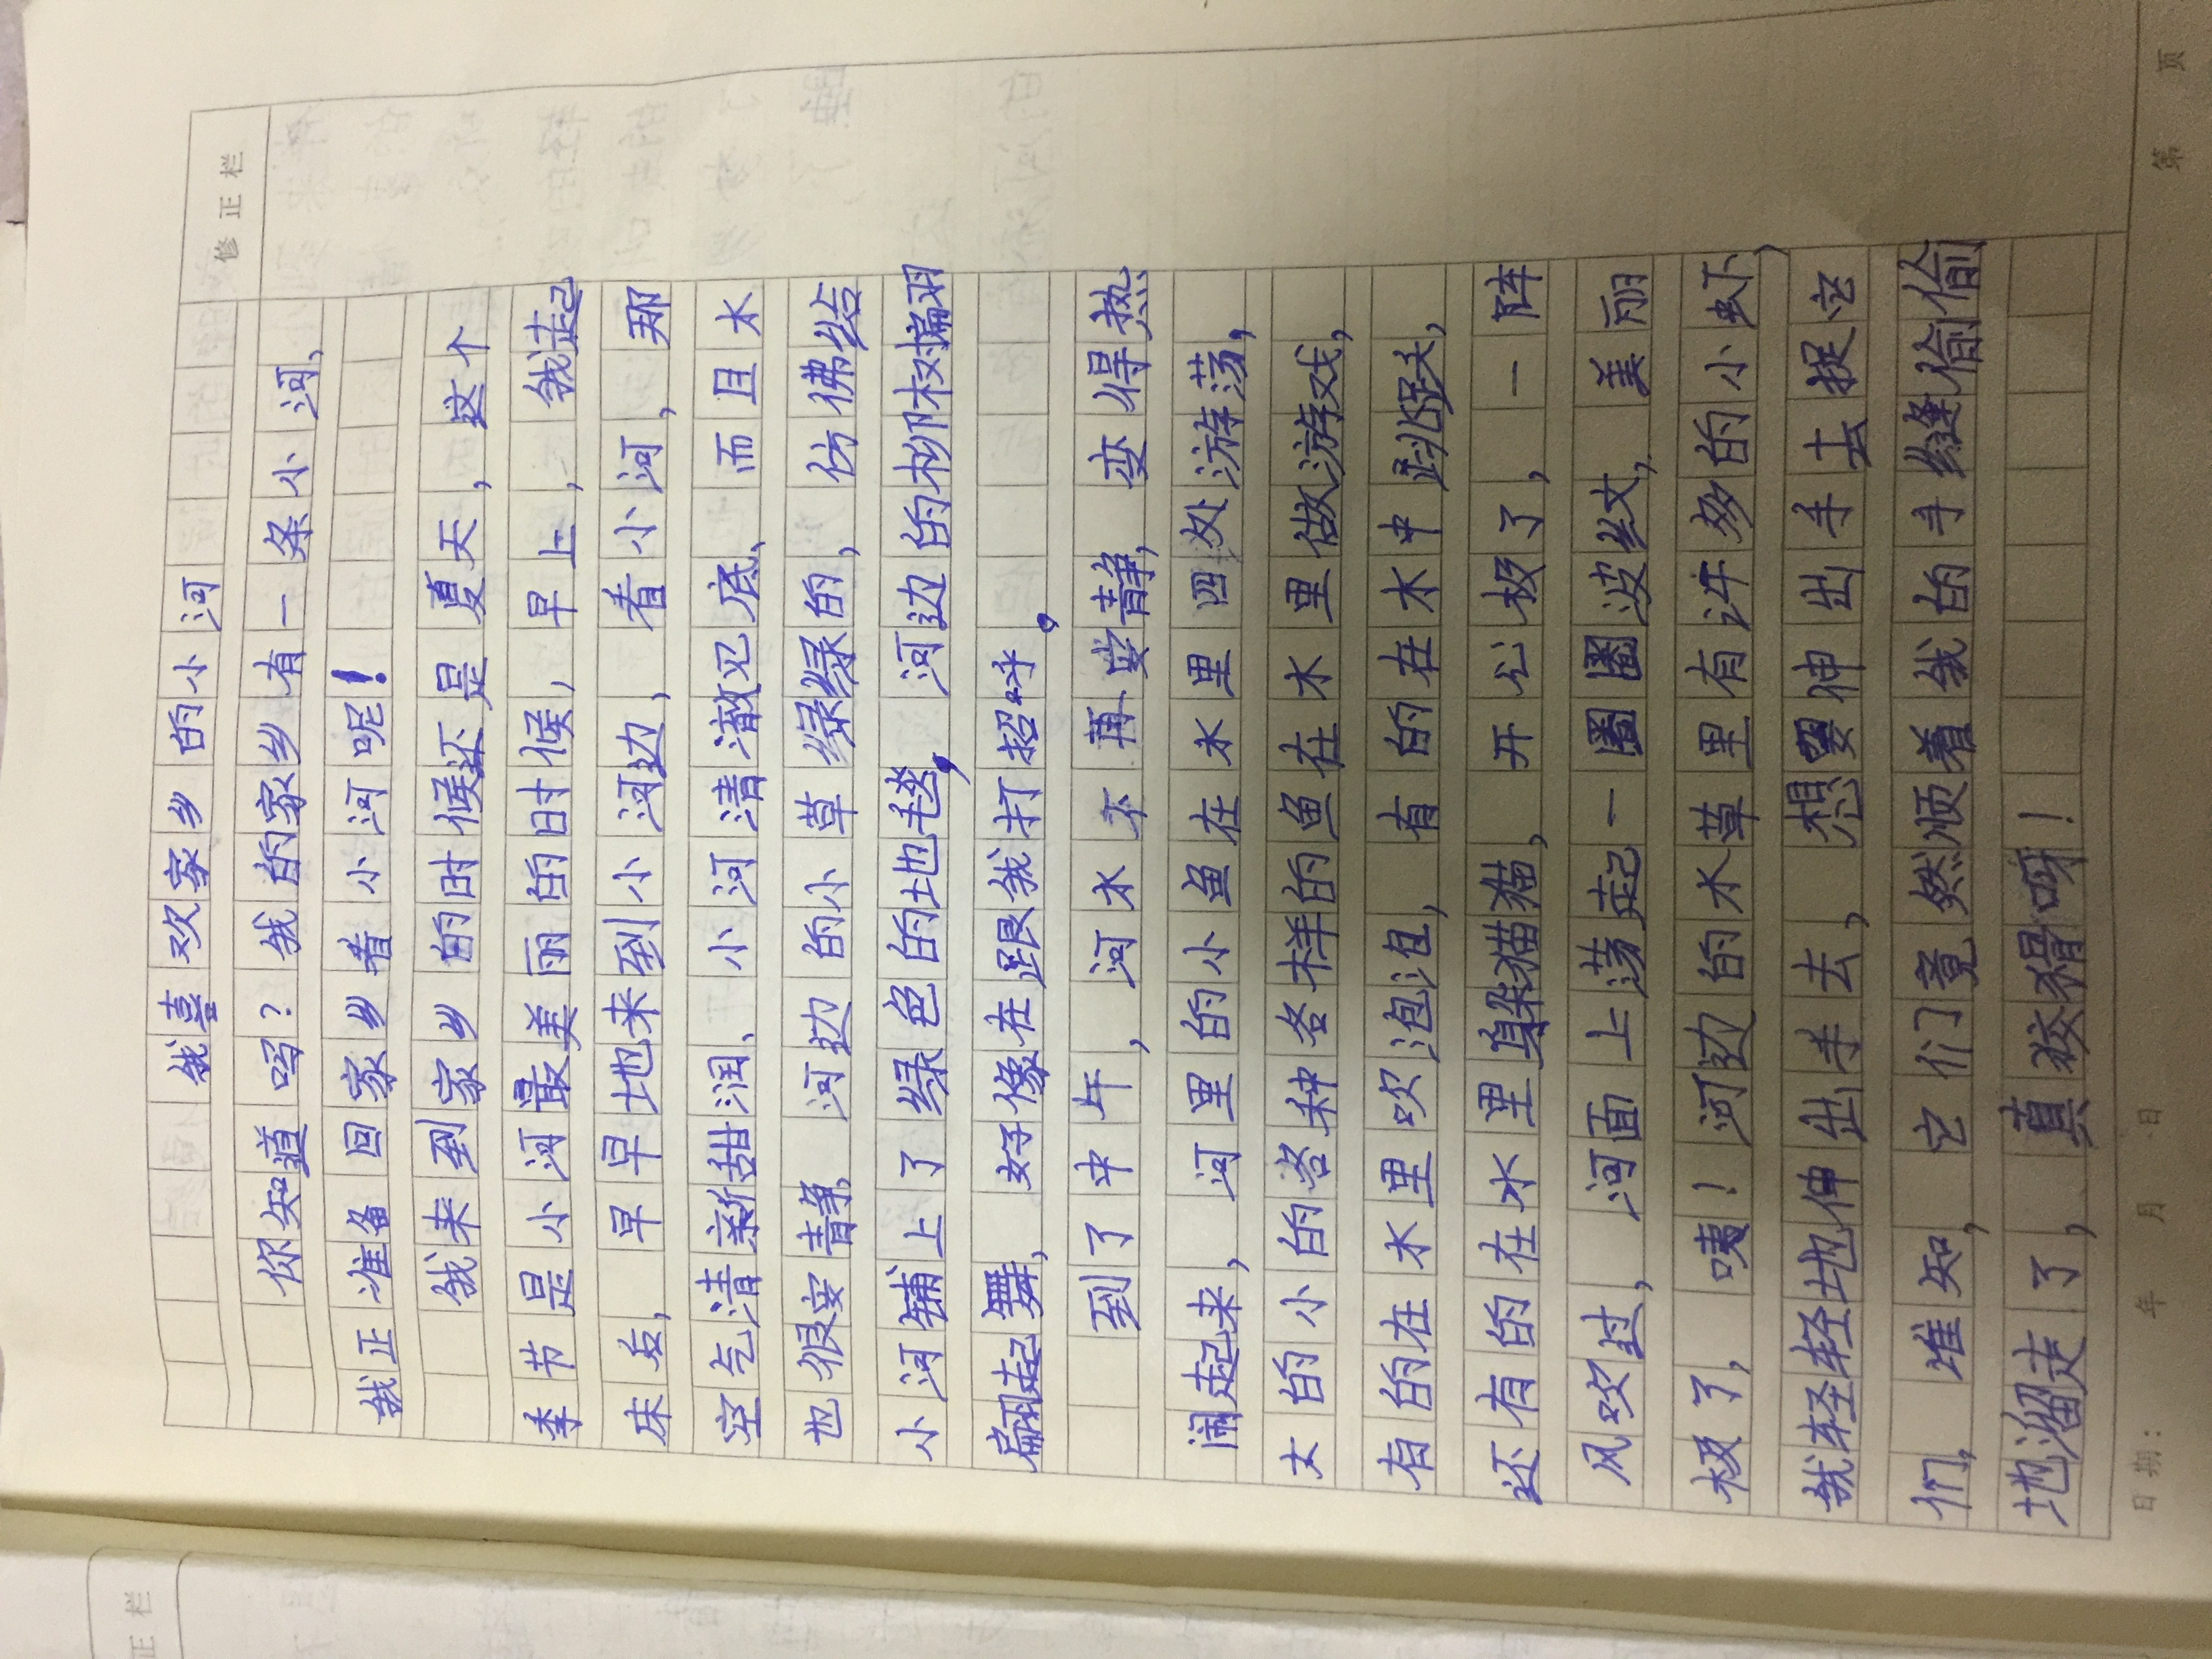 修正栏
我喜欢家乡的小河
你知道吗?我的家乡有一条小河,
我正准备回家乡看小河呢!
我来到家乡的时候还是夏天,这个
季节是小河最美丽的时候,早上,我起
床后,早早地来到小河边,看小河,那
空气清新甜润、小河清澈见底、而且水
也很安静,河边的小草绿绿的,仿佛给
小河铺上了绿色的地毯,河边的杨树翩
翩起舞,好像在跟我打招呼。
到了中午,河水不再安静,变得热
闹起来,河里的小鱼在水里四处游荡,
大的小的各种各样的鱼在水里做游戏,
有的在水里吹泡泡,有的在水中
还有的在水里躲猫猫,开心极了,一阵
风吹过,河面上荡起一圈圈波纹,美丽
极了,咦!河边的水草里有许多的小虾,
我轻轻地伸出手去,想要伸出手去捉它
们,谁知,它们竟然顺着我的手缝偷偷
地溜走了,真狡猾呀!
日期: 年 月 日 第 页
正栏